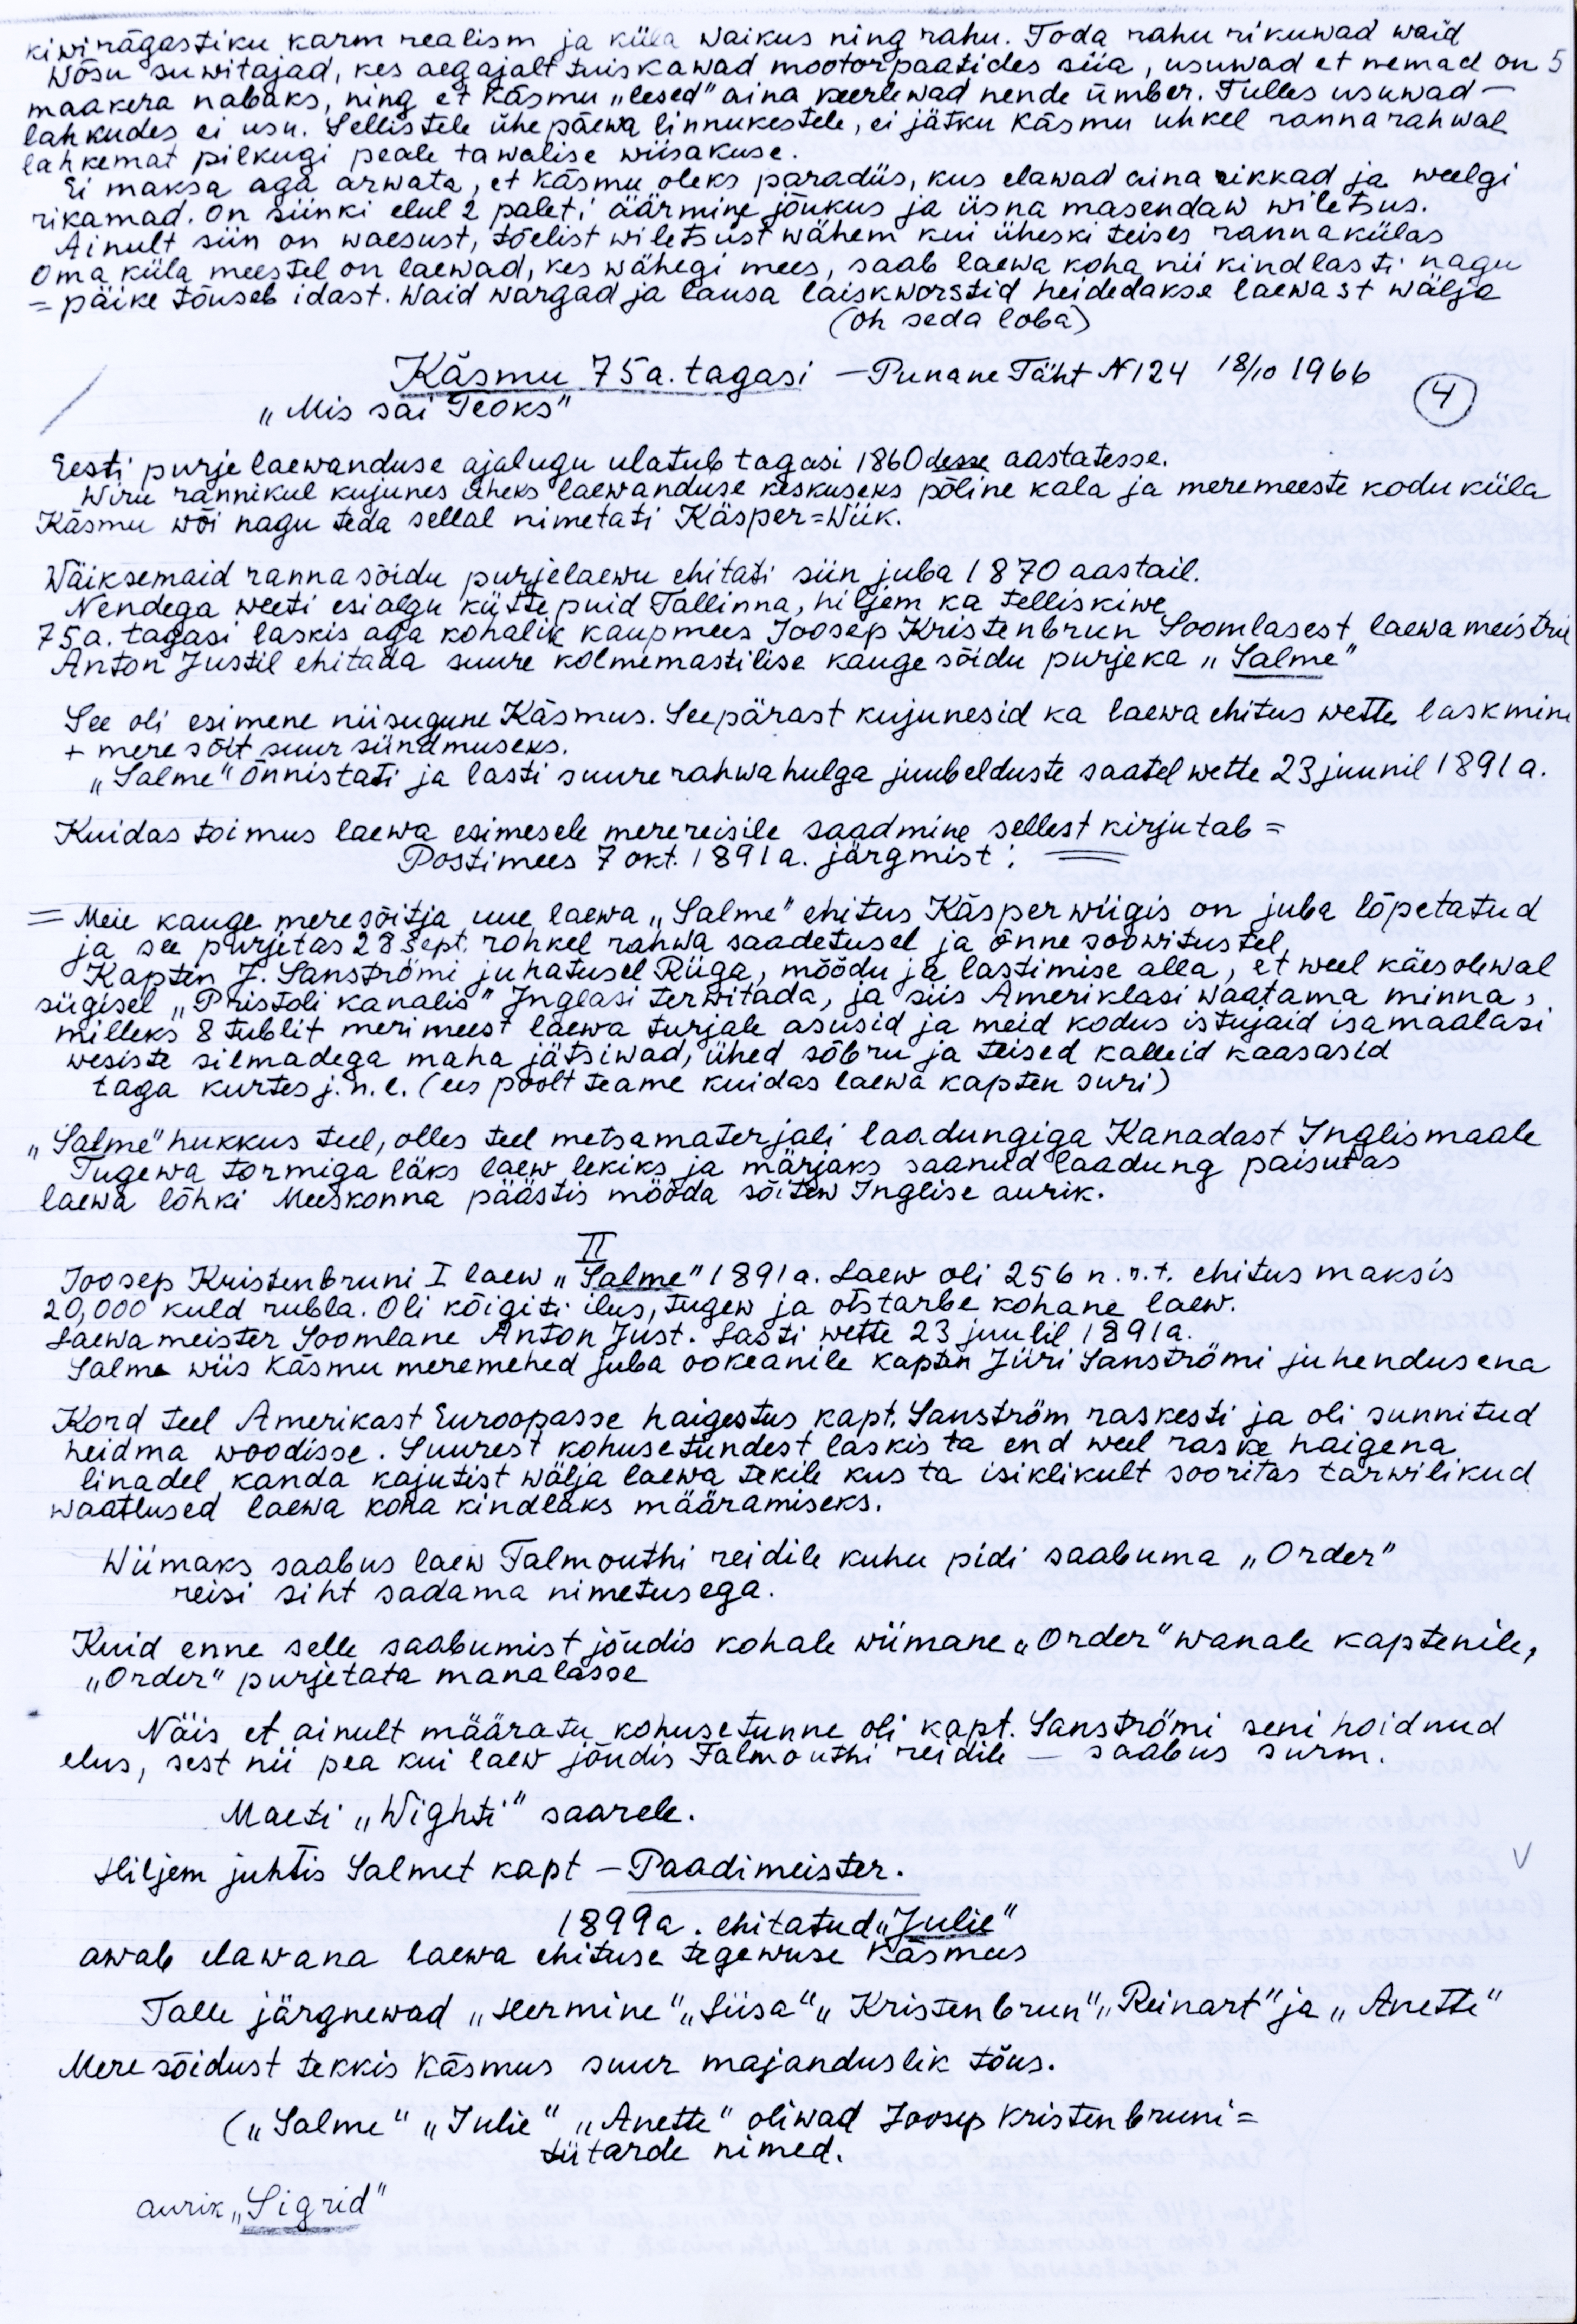 kiwirägastiku karm realism ja küla waikus ning rahu. Toda rahu rikuwad waid
Wõsu suwitajad, kes aegajalt tuiskawad mootorpaatides siia, usuwad et nemad on 5
maakera nabaks, ning et Käsmu „lesed" aina keerlewad nende ümber. Tulles usuwad —
lahkudes ei usu. Sellistele ühepäewa linnukestele, ei jätku Käsmu uhkel rannarahwal
lahkemat pilkugi peale tawalise wiisakuse.
Ei maksa aga arwata, et Käsmu oleks paradiis, kus elawad aina rikkad ja weelgi
rikamad. On siinki elul 2 paleti äärmine jõukus ja üsna masendaw wiletsus.
Ainult siin on waesust, tõelist wiletsust wähem kui üheski teises rannakülas
Oma küla meestel on laewad, kes wähegi mees, saab laewa koha nii kindlasti nagu
= päike tõuseb idast. Waid wargad ja lausa laiskworstid heidedakse laewast wälja
(oh seda loba)
Käsmu 75a. tagasi — Punane Täht N 124 18/10 1966
4
„Mis sai Teoks"
Eesti purjelaewanduse ajalugu ulatub tagasi 1860desse aastatesse.
Wiru rannikul kujunes üheks laewanduse keskuseks põline kala ja meremeeste kodu küla
Käsmu wõi nagu teda sellal nimetati Käsper=Wiik.
Wäiksemaid rannasõidu purjelaewu ehitati siin juba 1870 aastail.
Nendega weeti esialgu küttepuid Tallinna, hiljem ka telliskiwe
75a. tagasi laskis aga kohalik kaupmees Joosep Kristenbrun Soomlasest laewameistril
Anton Justil ehitada suure kolmemastilise kaugesõidu purjeka „Salme"
See oli esimene niisugune Käsmus. Seepärast kujunesid ka laewa ehitus wette laskmine
+ mere sõit suur sündmuseks.
„Salme" õnnistati ja lasti suure rahwahulga juubelduste saatel wette 23 juunil 1891 a.
Kuidas toimus laewa esimesele merereisile saadmine sellest kirjutab =
Postimees 7 okt. 1891 a. järgmist:
= Meie kauge meresõitja uue laewa „Salme" ehitus Käsperwiigis on juba lõpetatud
ja see purjetas 28 sept. rohkel rahwa saadetusel ja õnne soowitustel
Kapten J. Sanströmi juhatusel Riiga, mõõdu ja lastimise alla, et weel käesolewal
sügisel „Pristoli kanalis" Inglasi terwitada, ja siis Ameriklasi waatama minna,
milleks 8 tublit merimeest laewa turjale asusid ja meid kodus istujaid isamaalasi
wesiste silmadega maha jätsiwad, ühed sõbru ja teised kalleid kaasasid
taga kurtes j.n.e. (ees poolt teame kuidas laewa kapten suri)
„Salme" hukkus teel, olles teel metsamaterjali laadungiga Kanadast Inglismaale
Tugewa tormiga läks laew lekiks ja märjaks saanud laadung paisutas
laewa lõhki Meeskonna päästis mööda sõitew Inglise aurik.
II
Joosep Kristenbruni I laew „Salme" 1891a. Laew oli 256 n.r.t. ehitus maksis
20,000 kuld rubla. Oli kõigiti ilus, tugew ja otstarbe kohane laew.
Laewameister Soomlane Anton Just. Lasti wette 23 juulil 1891a.
Salme wiis Käsmu meremehed juba ookeanile kapten Jüri Sanströmi juhendusena
Kord teel Amerikast Euroopasse haigestus kapt. Sanström raskesti ja oli sunnitud
heidma woodisse. Suurest kohusetundest laskis ta end weel raske haigena
linadel kanda kajutist wälja laewa tekile kus ta isiklikult sooritas tarwilikud
waatlused laewa koha kindlaks määramiseks.
Wiimaks saabus laew Falmouthi reidile kuhu pidi saabuma „Order"
reisi siht sadama nimetusega.
Kuid enne selle saabumist jõudis kohale wiimane „Order" wanale kaptenile,
„Order" purjetata manalasse
Näis et ainult määratu kohusetunne oli kapt. Sanströmi seni hoidnud
elus, sest nii pea kui laew jõudis Falmouthi reidile — saabus surm.
Maeti „Wighti" saarele.
Hiljem juhtis Salmet kapt — Paadimeister.
1899a. ehitatud „Julie"
awab elawana laewa ehituse tegewuse Käsmus
Talle järgnewad „Hermine" „Liisa" „Kristenbrun" „Reinart" ja „Anette"
Mere sõidust tekkis Käsmus suur majanduslik tõus.
(„Salme" „Julie" „Anette" oliwad Joosep Kristenbruni =
tütarde nimed.
aurik „Sigrid"